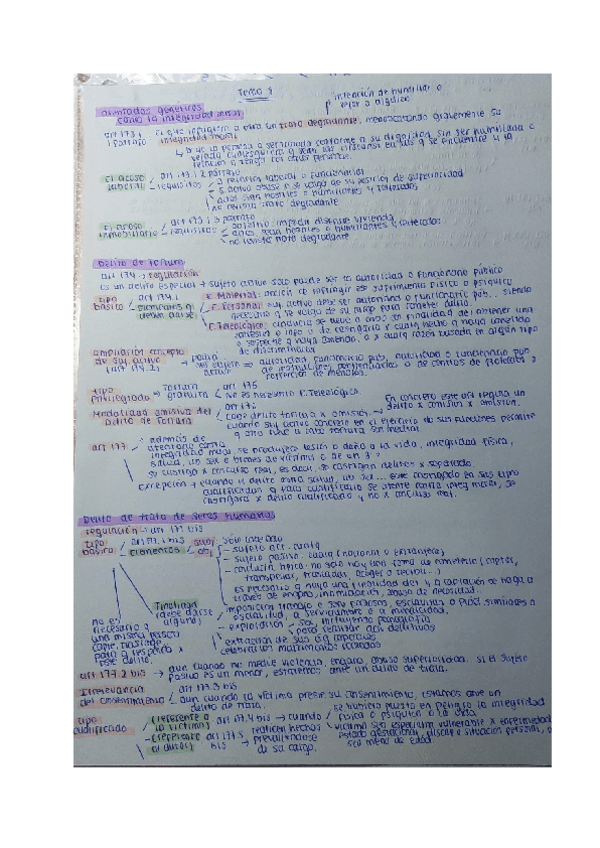 Tema 8
intención de humillar o
vejar a alguien
atentados genéricos
contra la integridad moral
art 173.1
1 párrafo
el que infligiera a otra un trato degradante, menoscabando gravemente su
integridad moral
d de la persona a ser tratada conforme a su dignidad, sin ser humillada o
vejada, cualesquiera q sean las circunstancias en las q se encuentre y la
relación q tenga con otras personas.
el acoso
laboral
art 173.1.2 párrafo
requisitos
relación laboral o funcionarial
s. activo abuse o se valga de su posición de superioridad
actos sean hostiles o humillantes y reiterados
no revista trato degradante
el acoso
inmobiliario
art 173.1.3 párrafo
requisitos
objetivo: impedir disfrute vivienda
actos sean hostiles o humillantes y reiterados
no constituya trato degradante
Delito de tortura
art 174 → regulación
es un delito especial → sujeto activo solo puede ser la autoridad o funcionario público
tipo
básico
art 174.1
elementos q
deben darse
E. Material: acción de infringir ese sufrimiento físico o psíquico
E. Personal: suj activo debe ser autoridad o funcionario púb... siendo
necesario q se valga de su cargo para cometer delito.
E. Teleológico: conducta se lleve a cabo con finalidad de: obtener una
confesión o info o de castigarlo x cualq hecho q haya cometido
o sospeche q haya cometido, o x cualq razón basada en algún tipo
de discriminación
ampliación concepto
de suj activo
(art 174.2)
podrá
ser sujeto
activo
autoridad funcionario púb, autoridad o funcionario púb
de instituciones penitenciarias o de centros de protección o
corrección de menores.
tipo
privilegiado
Tortura
gratuita
art 175
No es necesario E. Teleológico
Modalidad omisiva del
delito de tortura
art 176
cabe delito tortura x omisión →
En concreto este art regula un
delito x comisión x omisión.
cuando suj activo concreto en el ejercicio de sus funciones permite
q otro lleve a cabo tortura sin hacer na
art 177
además de
atentado contra
integridad moral, se produjera lesión o daño a la vida, integridad física,
salud, lib sex o bienes de víctima o de un 3º
su castigo x concurso real, es decir, se castigan delitos x separado.
excepción → cuando el delito contra salud, lib sex... esté castigado en sus tipos
cualificados q para cualificarlo se atente contra integ moral, se
castigará x delito cualificado y no x concurso real.
Delito de trata de seres humanos
regulación → art 177 bis
tipo
básico
art 177.1 bis
elementos
- sujeto act. cualq
- sujeto pasivo. cualq (nacional o extranjero)
- conducta típica: no solo hay una forma de cometerla (captar,
transportar, trasladar, acoger o recibir...)
es necesario q haya una finalidad del y q captación se haga a
través de engaño, intimidación, abuso de necesidad...
no es
necesario q
una misma persona
capte, traslade
para q responda x
este delito.
Finalidad
(debe darse
alguna)
imposición trabajo o serv forzosos, esclavitud o práct similares a
esclavitud, a servidumbre o a mendicidad.
explotación sex, incluyendo pornografía
para realizar act delictivas
extracción de sus órg corporales
celebración matrimonios forzados
art 177.2 bis → aun cuando no medie violencia, engaño, abuso superioridad. si el sujeto
pasivo es un menor, estaremos ante un delito de trata.
Irrelevancia
del consentimiento
art 177.3 bis
aun cuando la víctima preste su consentimiento, estamos ante un
delito de trata.
tipo
cualificado
(referente a
la víctima)
art 177.4 bis → cuando
se hubiera puesto en peligro la integridad
física o psíquica o la vida.
víctima sea especialm vulnerable x enfermedad
estado gestacional, discap o situación personal, o
sea menor de edad
(referente
al autor)
art 177.5
bis
realicen hechos
prevaliéndose
de su cargo.